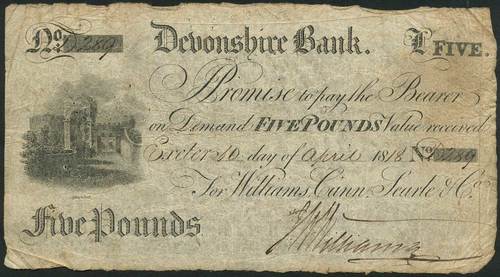 No. D289 Devonshire Bank. £ FIVE.
I Promise to pay the Bearer
on Demand FIVE POUNDS Value received
Exeter 10 day of April 1818 No. D289
For Williams, Cann, Searle & Co.
Five Pounds Williams